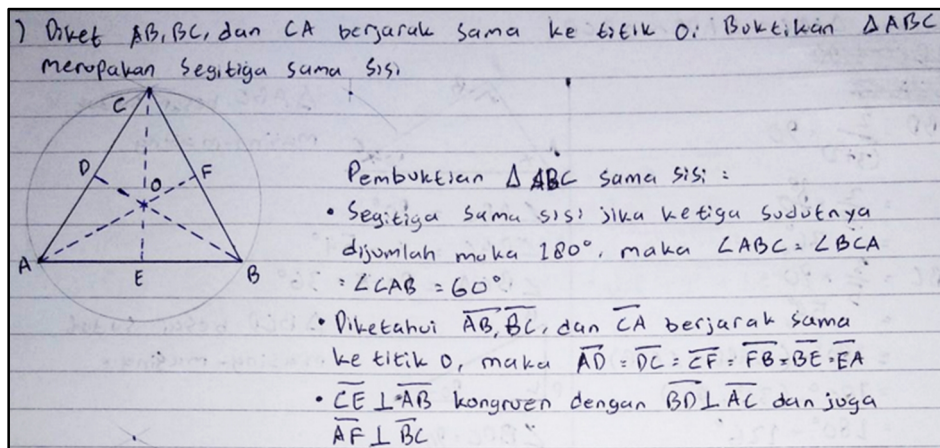 ) Diket AB, BC, dan CA berjarak sama ke titik O. Buktikan △ABC
merupakan Segitiga sama sisi
C
D
O
F
A
E
B
Pembuktian △ ABC sama sisi :
• Segitiga sama sisi jika ketiga sudutnya
dijumlah maka 180°, maka ∠ABC = ∠BCA
= ∠CAB = 60°
• Diketahui A̅B̅, B̅C̅, dan C̅A̅ berjarak sama
ke titik O, maka A̅D̅ = D̅C̅ = C̅F̅ = F̅B̅ = B̅E̅ = E̅A̅
• C̅E̅ ⊥ A̅B̅ kongruen dengan B̅D̅ ⊥ A̅C̅ dan juga
A̅F̅ ⊥ B̅C̅